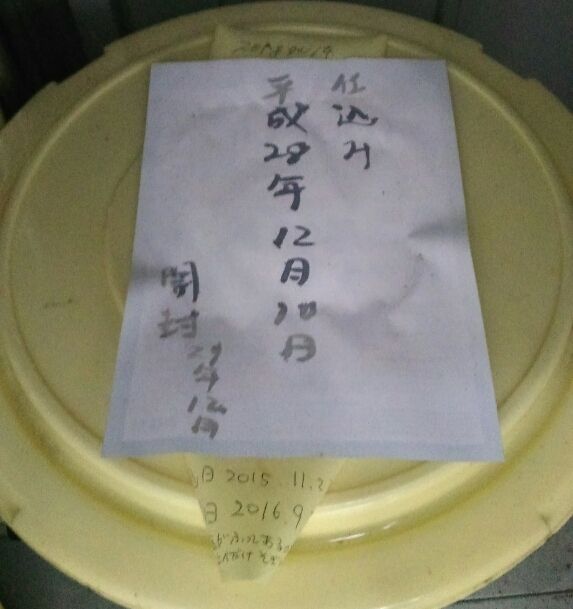 仕込み
平成28年12月10日
開封
29年12月
日 2015.11.2
日 2016.9